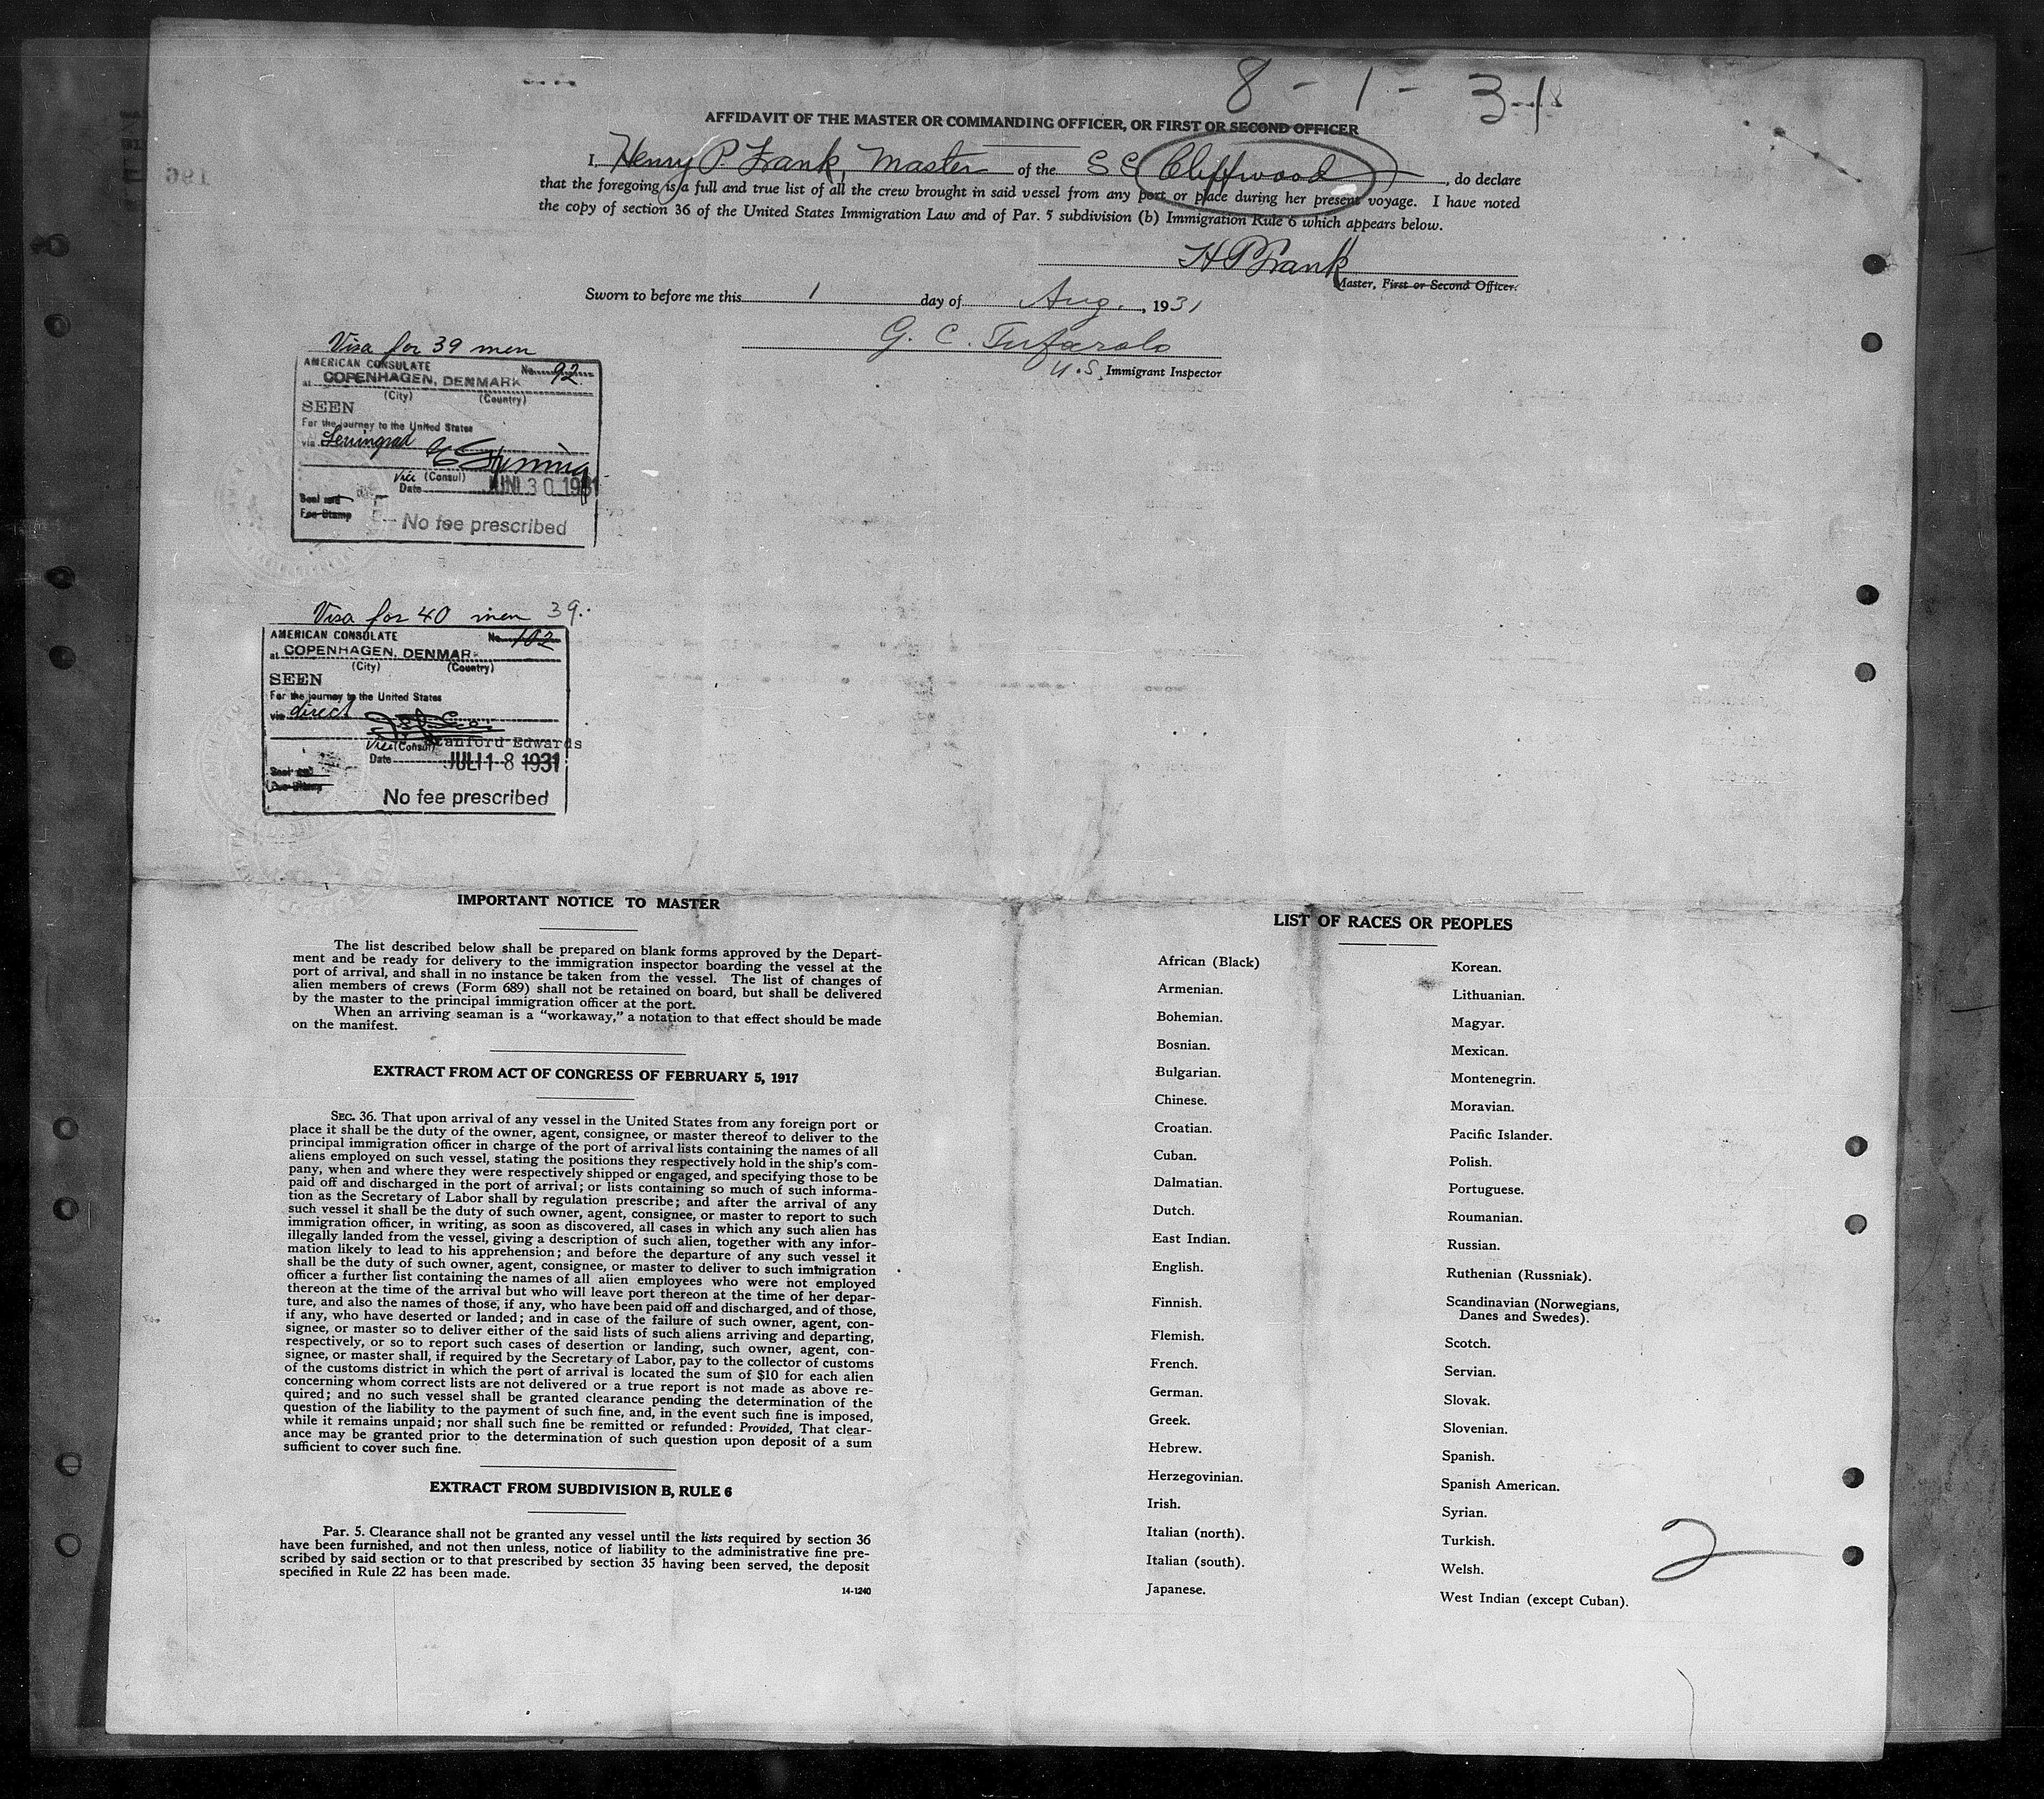 8 - 1 - 31
AFFIDAVIT OF THE MASTER OR COMMANDING OFFICER, OR FIRST OR SECOND OFFICER
I, Henry P. Frank, Master of the S S Cliffwood, do declare
that the foregoing is a full and true list of all the crew brought in said vessel from any port or place during her present voyage. I have noted
the copy of section 36 of the United States Immigration Law and of Par. 5 subdivision (b) Immigration Rule 6 which appears below.
H P Frank
Master, First or Second Officer.
Sworn to before me this 1 day of Aug., 1931
G. C. Tufarolo
U.S. Immigrant Inspector
Visa for 39 men
AMERICAN CONSULATE No. 92
at COPENHAGEN, DENMARK
(City) (Country)
SEEN
For the journey to the United States
via Leningrad
Vice (Consul)
Date JUNI 30 1931
Seal and
Fee Stamp
No fee prescribed
Visa for 40 men 39.
AMERICAN CONSULATE No. 102
at COPENHAGEN, DENMAR
(City) (Country)
SEEN
For the journey to the United States
via direct
Vice (Consul) Stanford Edwards
Date JULI 18 1931
Seal and
Fee Stamp
No fee prescribed
IMPORTANT NOTICE TO MASTER
The list described below shall be prepared on blank forms approved by the Depart-
ment and be ready for delivery to the immigration inspector boarding the vessel at the
port of arrival, and shall in no instance be taken from the vessel. The list of changes of
alien members of crews (Form 689) shall not be retained on board, but shall be delivered
by the master to the principal immigration officer at the port.
When an arriving seaman is a "workaway," a notation to that effect should be made
on the manifest.
EXTRACT FROM ACT OF CONGRESS OF FEBRUARY 5, 1917
SEC. 36. That upon arrival of any vessel in the United States from any foreign port or
place it shall be the duty of the owner, agent, consignee, or master thereof to deliver to the
principal immigration officer in charge of the port of arrival lists containing the names of all
aliens employed on such vessel, stating the positions they respectively hold in the ship's com-
pany, when and where they were respectively shipped or engaged, and specifying those to be
paid off and discharged in the port of arrival; or lists containing so much of such informa-
tion as the Secretary of Labor shall by regulation prescribe; and after the arrival of any
such vessel it shall be the duty of such owner, agent, consignee, or master to report to such
immigration officer, in writing, as soon as discovered, all cases in which any such alien has
illegally landed from the vessel, giving a description of such alien, together with any infor-
mation likely to lead to his apprehension; and before the departure of any such vessel it
shall be the duty of such owner, agent, consignee, or master to deliver to such immigration
officer a further list containing the names of all alien employees who were not employed
thereon at the time of the arrival but who will leave port thereon at the time of her depar-
ture, and also the names of those, if any, who have been paid off and discharged, and of those,
if any, who have deserted or landed; and in case of the failure of such owner, agent, con-
signee, or master so to deliver either of the said lists of such aliens arriving and departing,
respectively, or so to report such cases of desertion or landing, such owner, agent, con-
signee, or master shall, if required by the Secretary of Labor, pay to the collector of customs
of the customs district in which the port of arrival is located the sum of $10 for each alien
concerning whom correct lists are not delivered or a true report is not made as above re-
quired; and no such vessel shall be granted clearance pending the determination of the
question of the liability to the payment of such fine, and, in the event such fine is imposed,
while it remains unpaid; nor shall such fine be remitted or refunded: Provided, That clear-
ance may be granted prior to the determination of such question upon deposit of a sum
sufficient to cover such fine.
EXTRACT FROM SUBDIVISION B, RULE 6
Par. 5. Clearance shall not be granted any vessel until the lists required by section 36
have been furnished, and not then unless, notice of liability to the administrative fine pre-
scribed by said section or to that prescribed by section 35 having been served, the deposit
specified in Rule 22 has been made.
14-1240
LIST OF RACES OR PEOPLES
African (Black)
Armenian.
Bohemian.
Bosnian.
Bulgarian.
Chinese.
Croatian.
Cuban.
Dalmatian.
Dutch.
East Indian.
English.
Finnish.
Flemish.
French.
German.
Greek.
Hebrew.
Herzegovinian.
Irish.
Italian (north).
Italian (south).
Japanese.
Korean.
Lithuanian.
Magyar.
Mexican.
Montenegrin.
Moravian.
Pacific Islander.
Polish.
Portuguese.
Roumanian.
Russian.
Ruthenian (Russniak).
Scandinavian (Norwegians,
Danes and Swedes).
Scotch.
Servian.
Slovak.
Slovenian.
Spanish.
Spanish American.
Syrian.
Turkish.
Welsh.
West Indian (except Cuban).
2